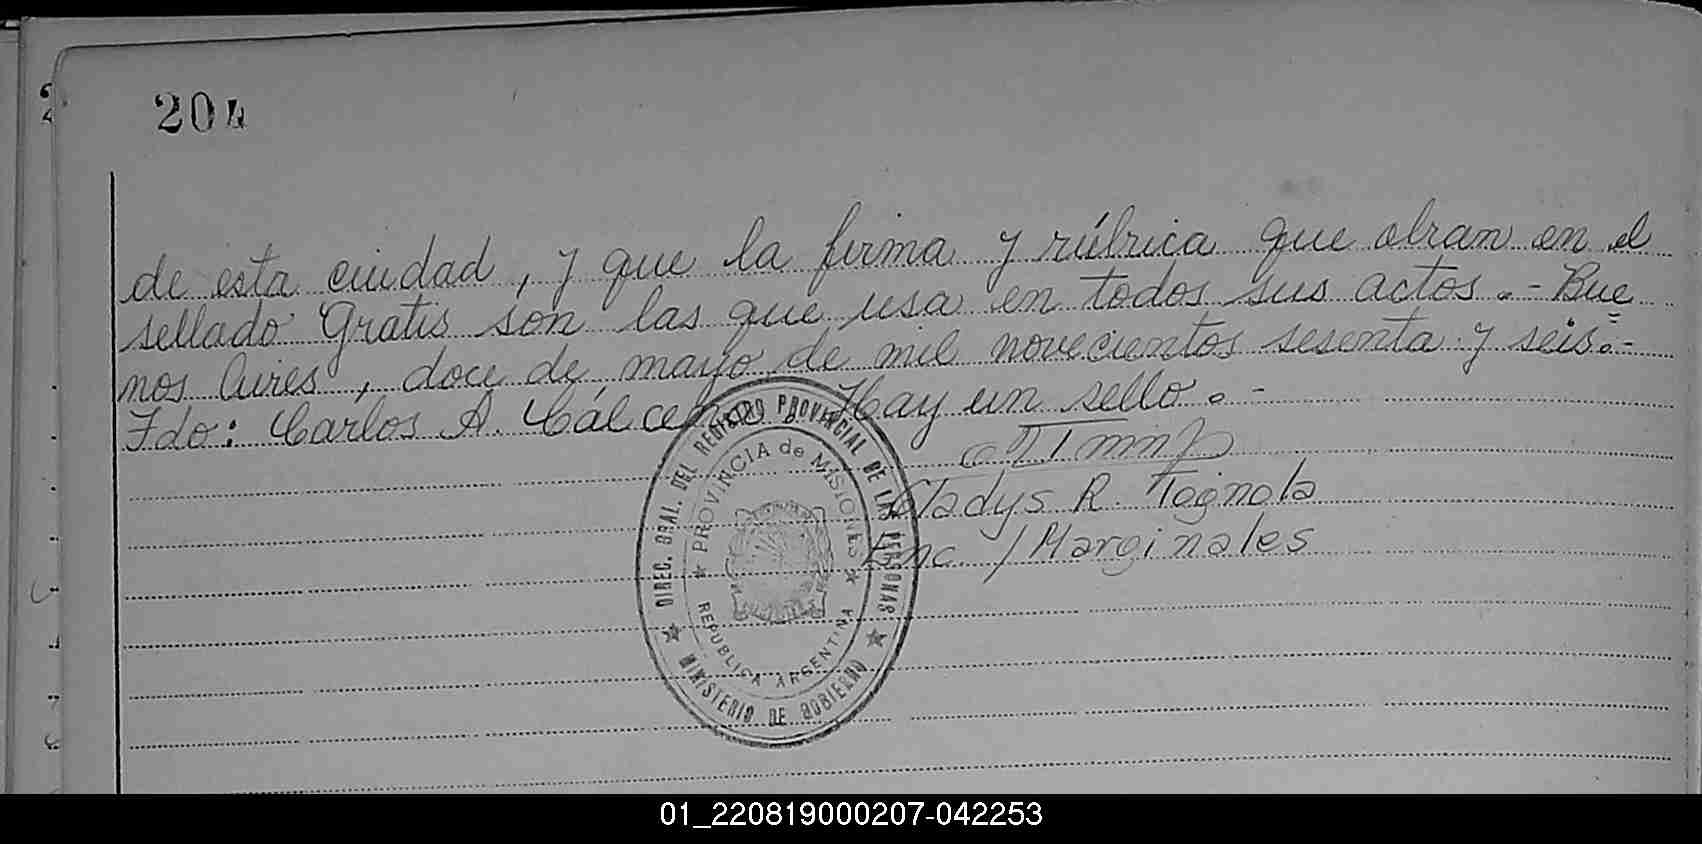 204
de esta ciudad, y que la firma y rúbrica que obran en el
sellado Gratis son las que usa en todos sus actos.- Bue
nos Aires, doce de mayo de mil novecientos sesenta y seis.-
Fdo: Carlos A. Hay un sello.-
Gladys R. Tognola
Enc. / Marginales
DIREC. GRAL. DEL REGISTRO PROVINCIAL DE LAS PERSONAS
PROVINCIA de MISIONES
REPUBLICA ARGENTINA
MINISTERIO DE GOBIERNO
01_220819000207-042253